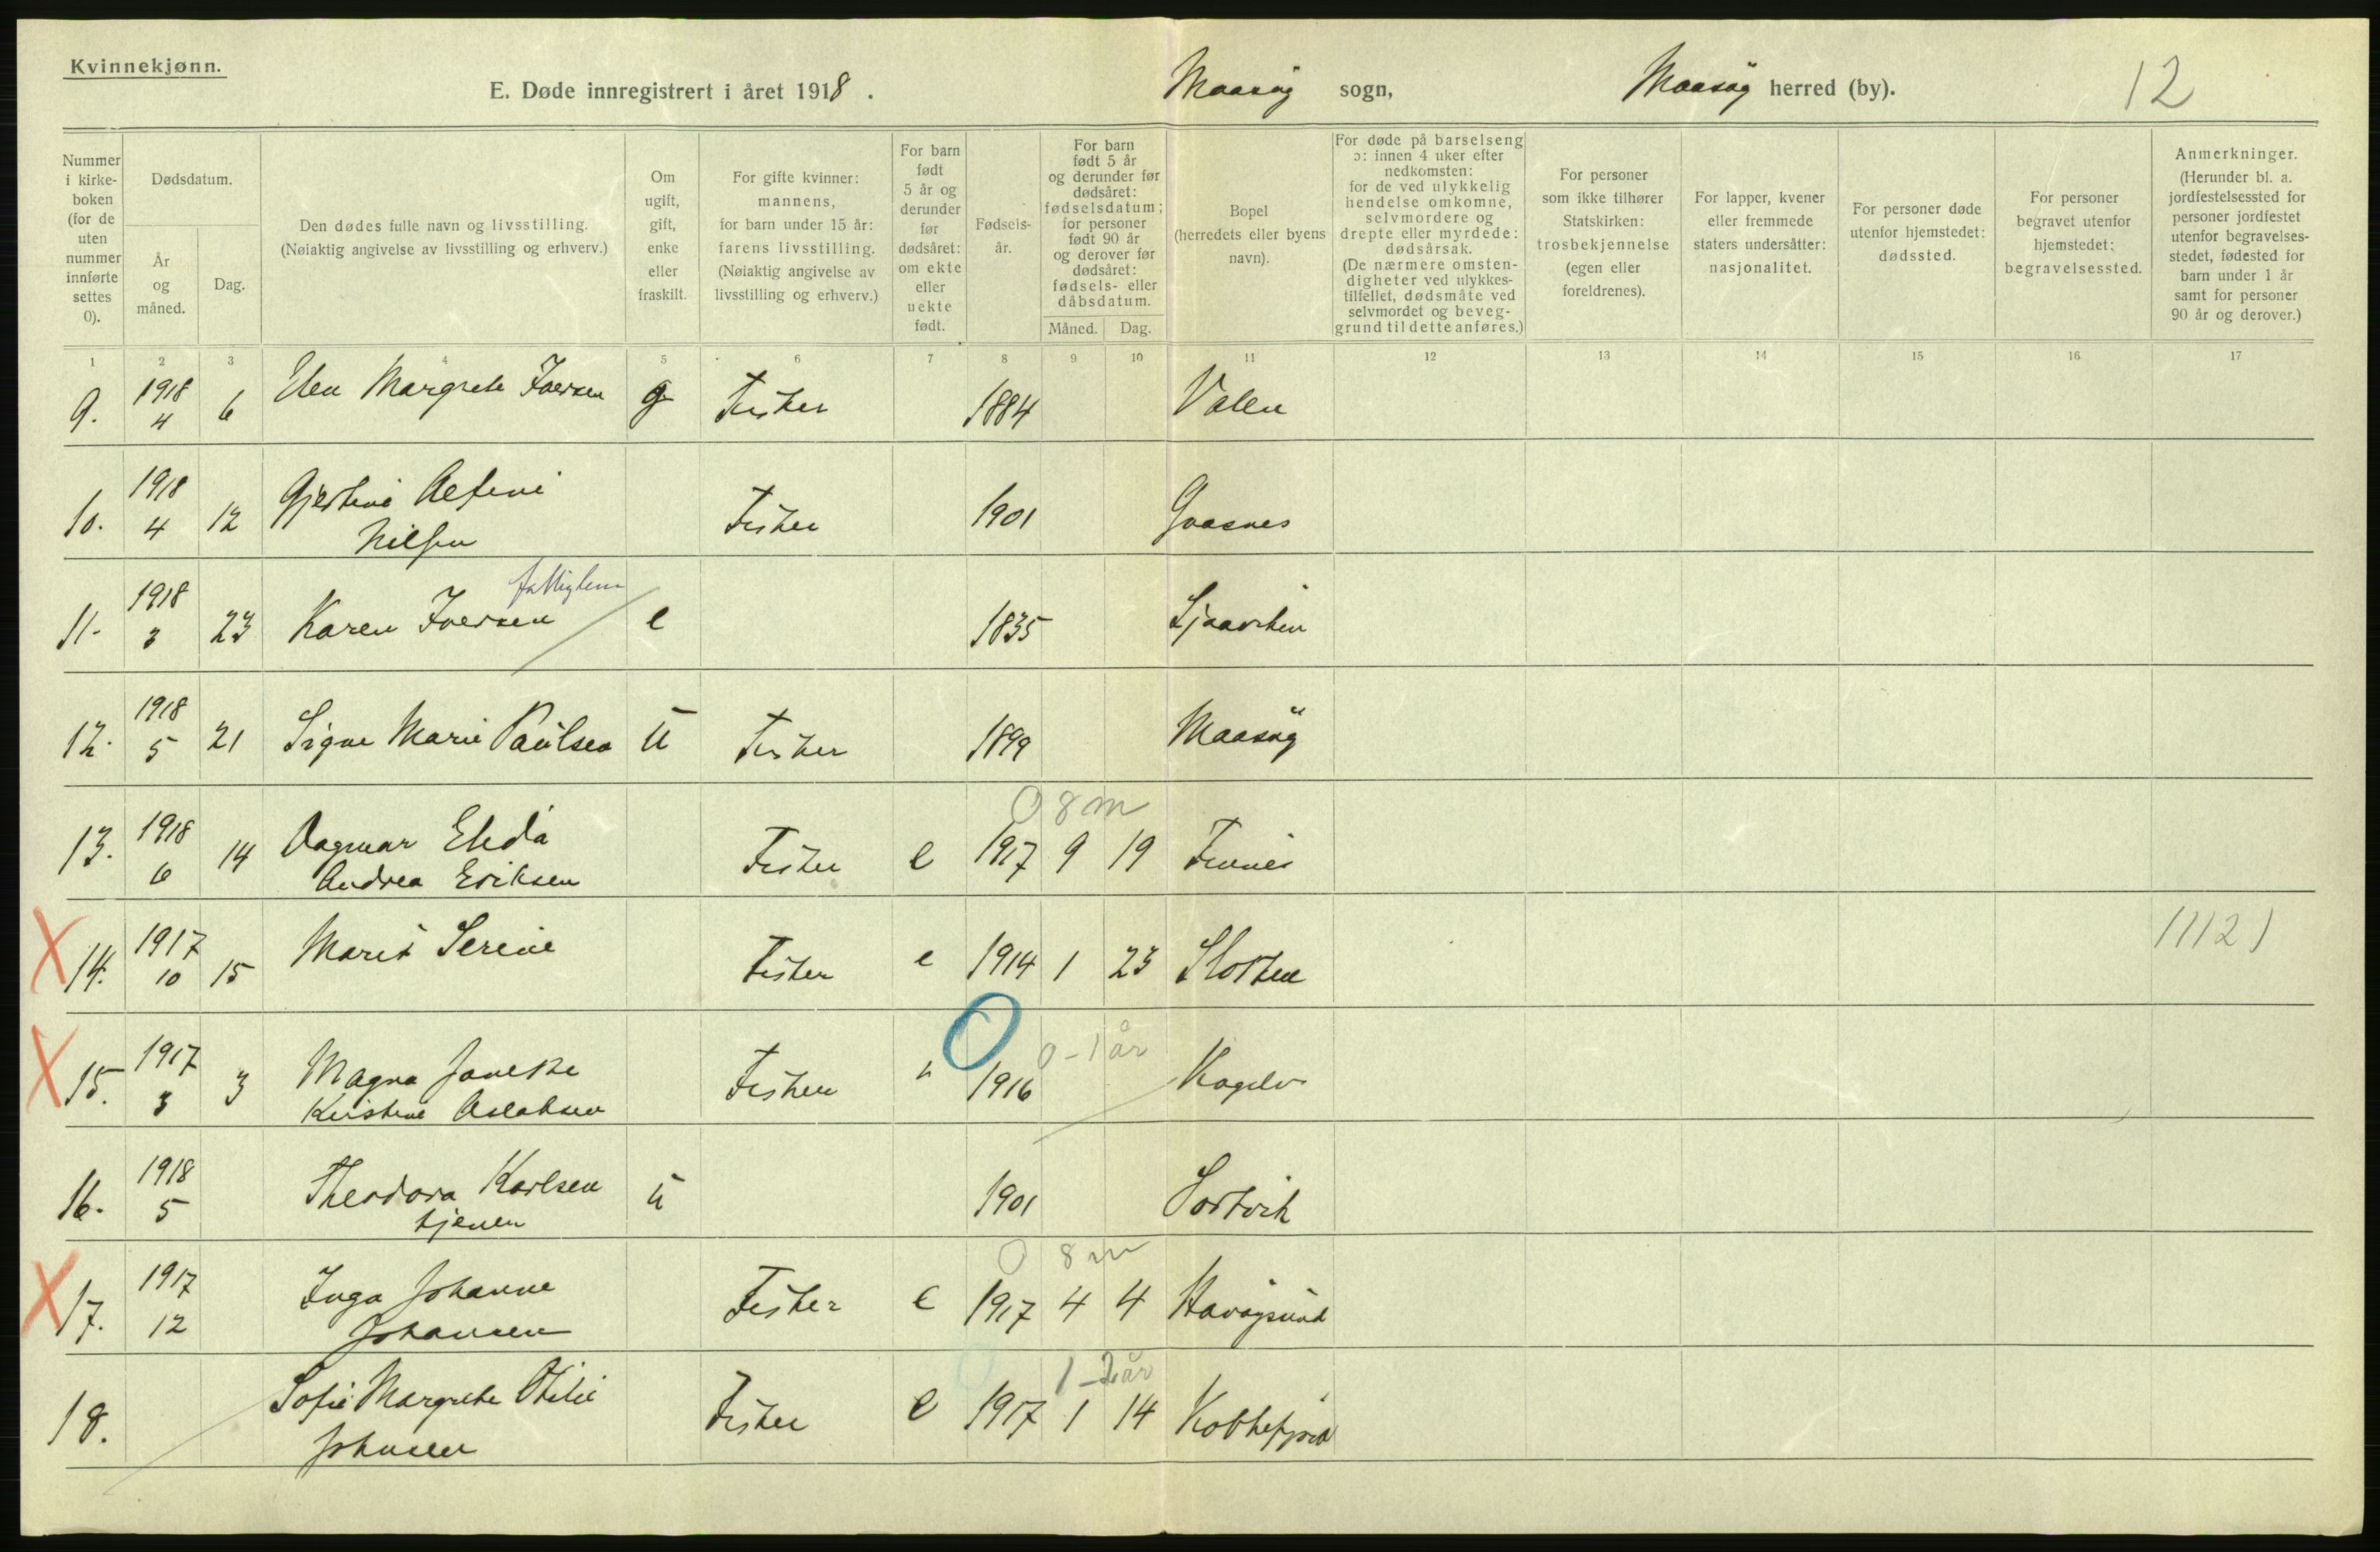 Kvinnekjønn.
E. Døde innregistrert i året 1918. Maasöy sogn, Maasöy herred (by). 12
Nummer i kirke-boken (for de uten nummer innførte settes 0).
Dødsdatum.
År og måned.
Dag.
Den dødes fulle navn og livsstilling.
(Nøiaktig angivelse av livsstilling og erhverv.)
Om ugift, gift, enke eller fraskilt.
For gifte kvinner: mannens, for barn under 15 år: farens livsstilling. (Nøiaktig angivelse av livsstilling og erhverv.)
For barn født 5 år og derunder før dødsåret: om ekte eller uekte født.
Fødsels-år.
For barn født 5 år og derunder før dødsåret: fødselsdatum; for personer født 90 år og derover før dødsåret: fødsels- eller dåbsdatum.
Måned. Dag.
Bopel (herredets eller byens navn).
For døde på barselseng ɔ: innen 4 uker efter nedkomsten: for de ved ulykkelig hendelse omkomne, selvmordere og drepte eller myrdede: dødsårsak. (De nærmere omsten-digheter ved ulykkes-tilfellet, dødsmåte ved selvmordet og beveg-grund til dette anføres.)
For personer som ikke tilhører Statskirken: trosbekjennelse (egen eller foreldrenes).
For lapper, kvener eller fremmede staters undersåtter: nasjonalitet.
For personer døde utenfor hjemstedet: dødssted.
For personer begravet utenfor hjemstedet: begravelsessted.
Anmerkninger. (Herunder bl. a. jordfestelsessted for personer jordfestet utenfor begravelses-stedet, fødested for barn under 1 år samt for personer 90 år og derover.)
1 2 3 4 5 6 7 8 9 10 11 12 13 14 15 16 17
9. 1918 4 6 Elen Margrete Iversen g Fisker 1884 Valen
10. 1918 4 12 Gjertine
Nilsen Fisker 1901
fattiglem
11. 1918 3 23 Karen Iversen e 1835
12. 1918 5 21 Signe Marie Paulsen u Fisker 1899 Maasöy
0 8 m
13. 1918 6 14 Dagmar Elida
Andrea Eriksen Fisker e 1917 9 19
X 14. 1917 10 15 Marit Serine Fisker e 1914 1 23 Slotten 11121
0 0-1 år
X 15. 1917 3 3 Magna
Kristine Aslaksen Fisker " 1916
16. 1918 5 Theodora Karlsen u 1901 Sortvik
tjener
0 8 m
X 17. 1917 12 Inga Johanne
Johansen Fisker e 1917 4 4 Havöysund
0 1-2 år
18. Sofie Margrete Otilie
Johnsen Fisker e 1917 1 14 Kobbefjord